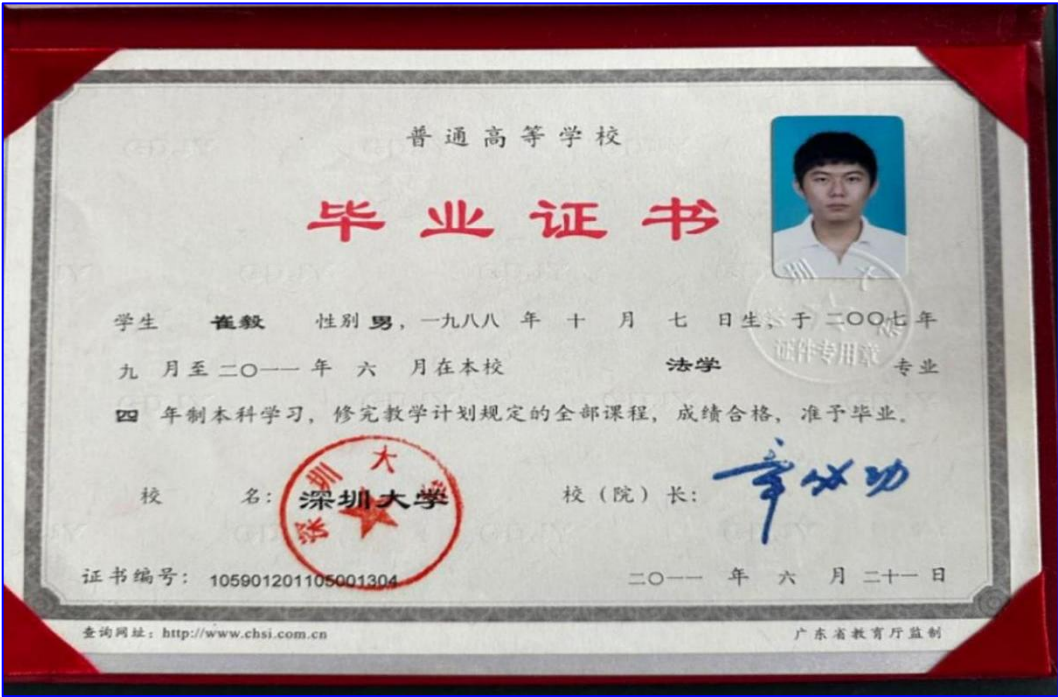 普通高等学校
毕业证书
学生 崔毅 性别 男，一九八八 年 十 月 七 日生，于 二〇〇七 年
九 月至 二〇一一 年 六 月在本校 法学 专业
四 年制本科学习，修完教学计划规定的全部课程，成绩合格，准予毕业。
校 名：深圳大学 校（院）长：章必功
深圳大学
深圳大学
证件专用章
证书编号：105901201105001304 二〇一一 年 六 月 二十一 日
查询网址：http://www.chsi.com.cn 广东省教育厅监制